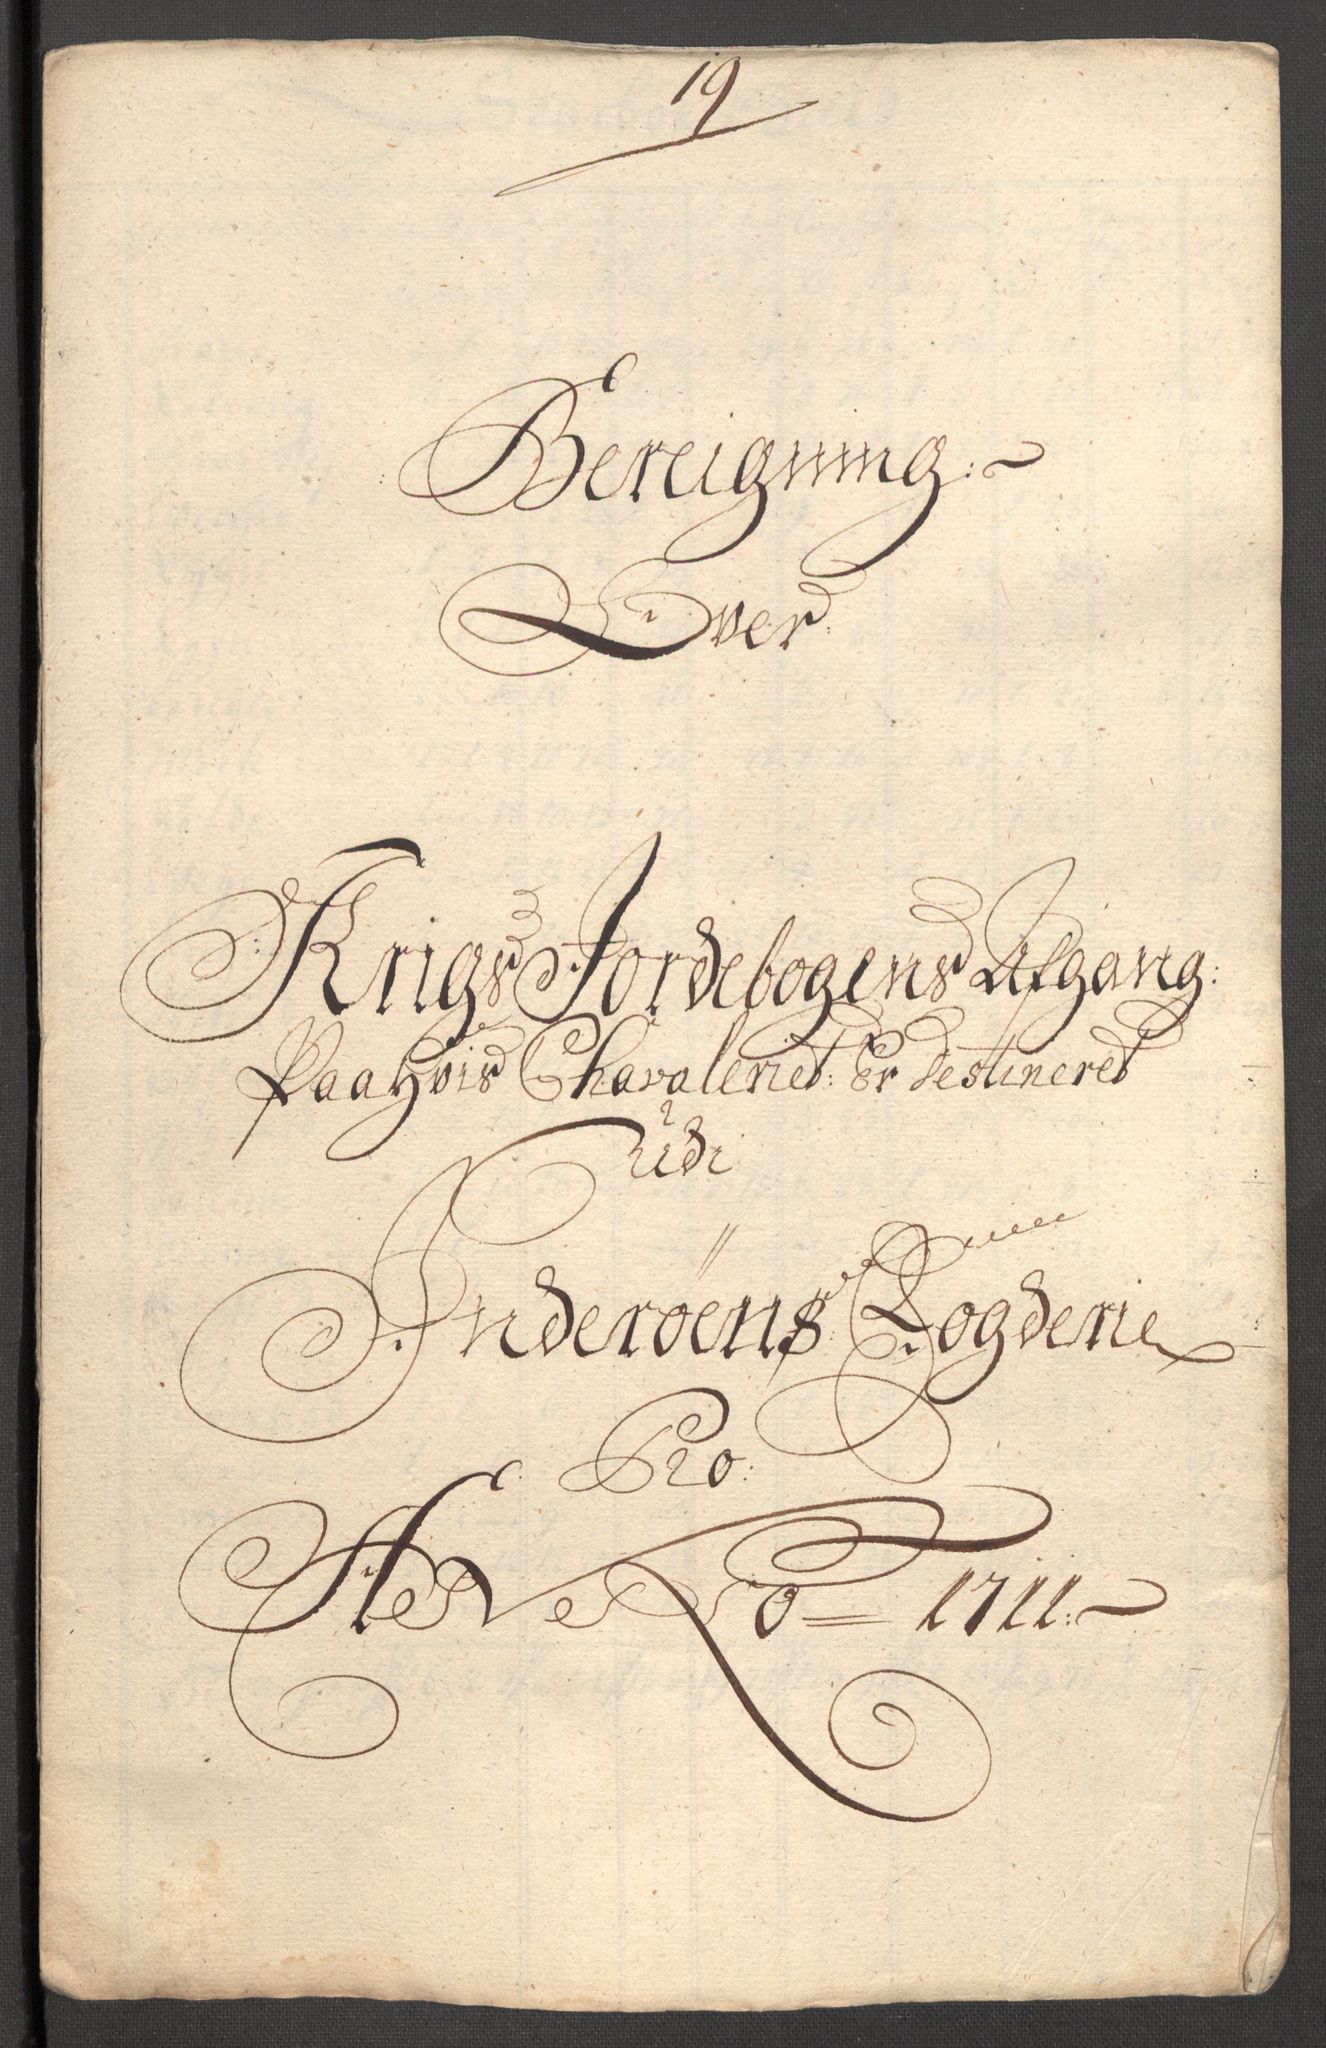 19
Bereigning:
Over:
Krigs Jordebogens Afgang:
Paa Hvis Chavaleriet: Er destineret
Udi
Inderöens Fogderie
Pro:
A N N O = 1711: